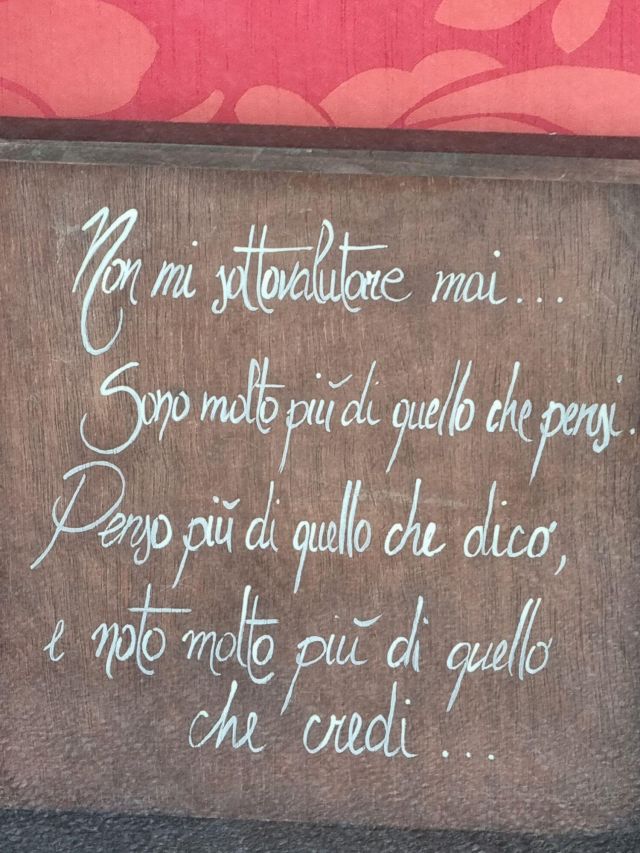 Non mi sottovalutare mai...
Sono molto più di quello che pensi.
Penso più di quello che dico,
e noto molto più di quello
che credi...